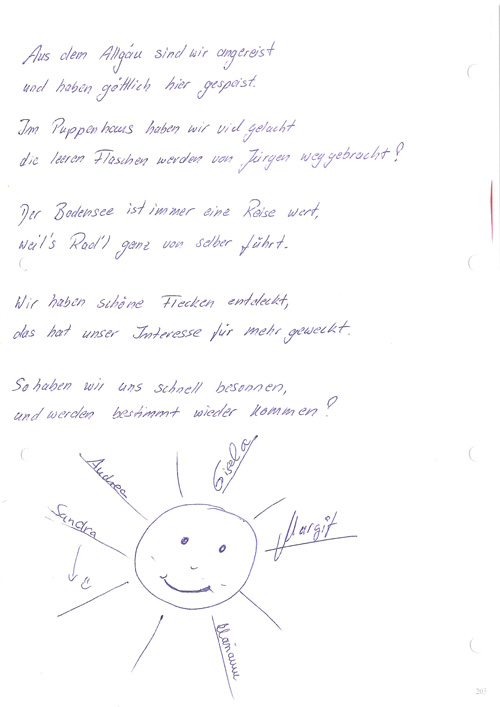 Aus dem Allgäu sind wir angereist
und haben göttlich hier gespeist.
Im Puppenhaus haben wir viel gelacht
die leeren Flaschen werden von Jürgen weggebracht!
Der Bodensee ist immer eine Reise wert,
weil's Rad'l ganz von selber fährt.
Wir haben schöne Flecken entdeckt,
das hat unser Interesse für mehr geweckt.
So haben wir uns schnell besonnen,
und werden bestimmt wieder kommen!
Gisela
Andrea
Sandra
Margit
Marianne
203